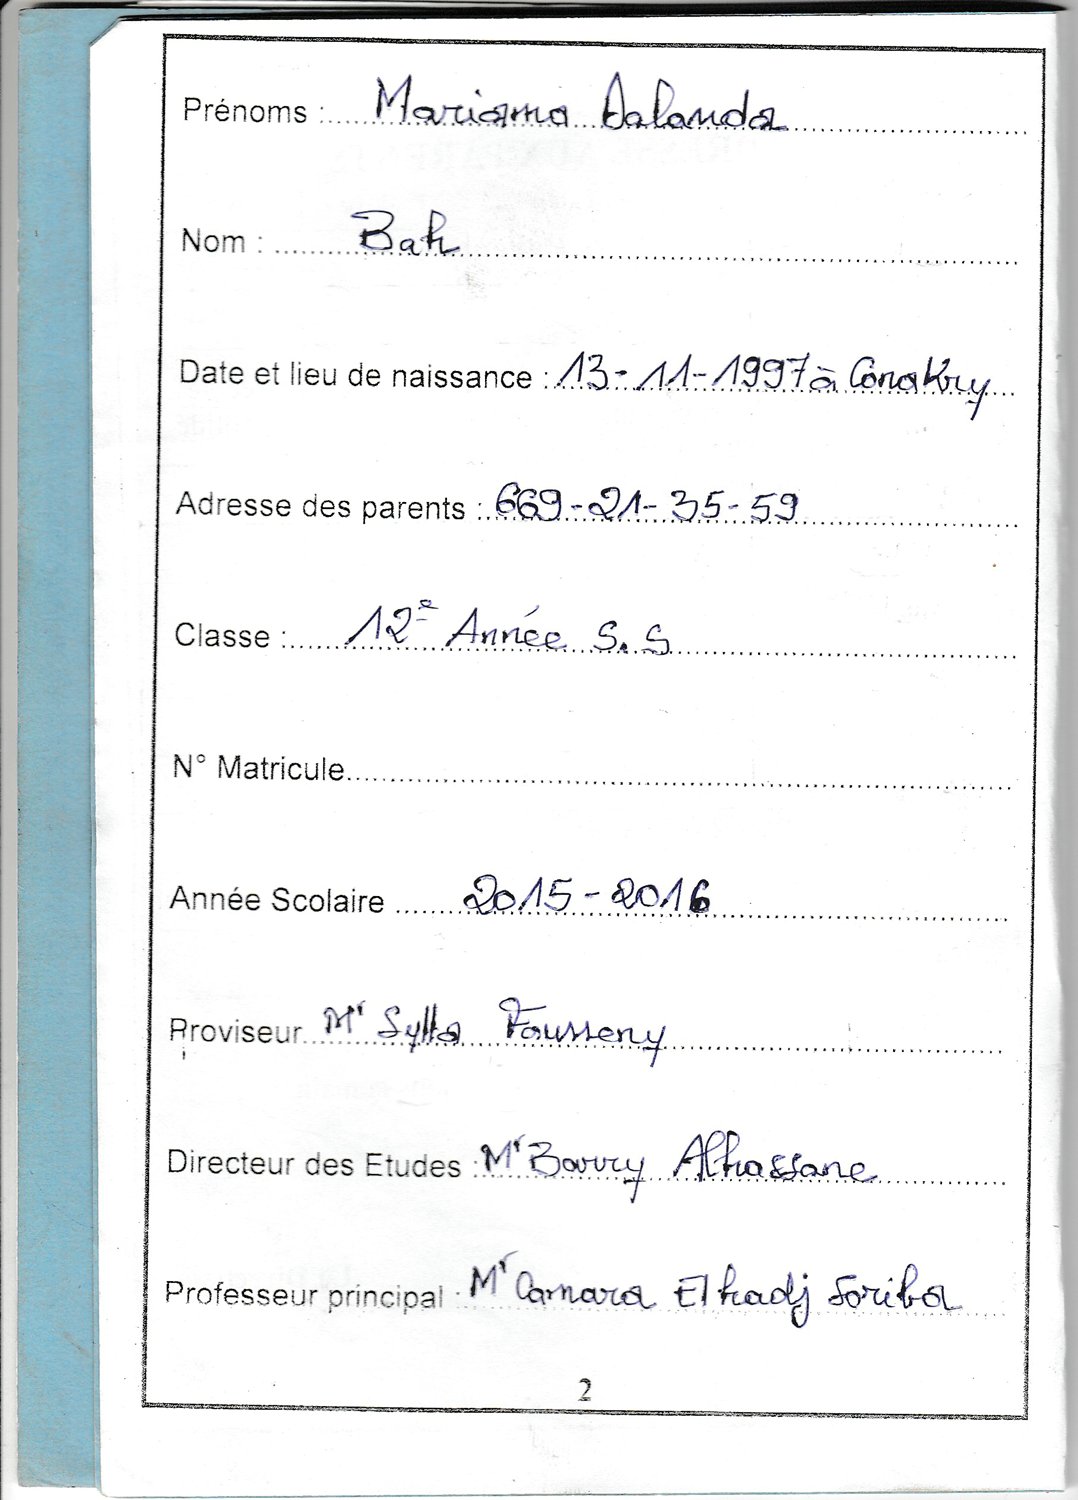 Prénoms : Mariama Dalanda
Nom : Bah
Date et lieu de naissance : 13-11-1997 à Conakry
Adresse des parents : 669-21-35-59
Classe : 12e Année S.S
N° Matricule
Année Scolaire 2015-2016
Proviseur Mr Sylla Fousseny
Directeur des Etudes : Mr Barry Alhassane
Professeur principal : Mr Camara Elhadj Soriba
2